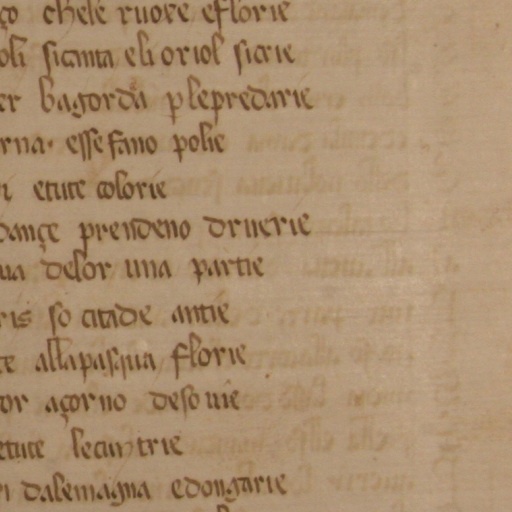 ço chele ruore eflorie
oli sicanta eli oriol sicrie
er bagorda p lepredarie
rna· esse fano polie
ri etute colorie
dançe prendeno druerie
ua delor una partie
ris so citade antie
te alla pasqua florie
or açorno deso uie
etute lecuntrie
ri dalemagna edongarie